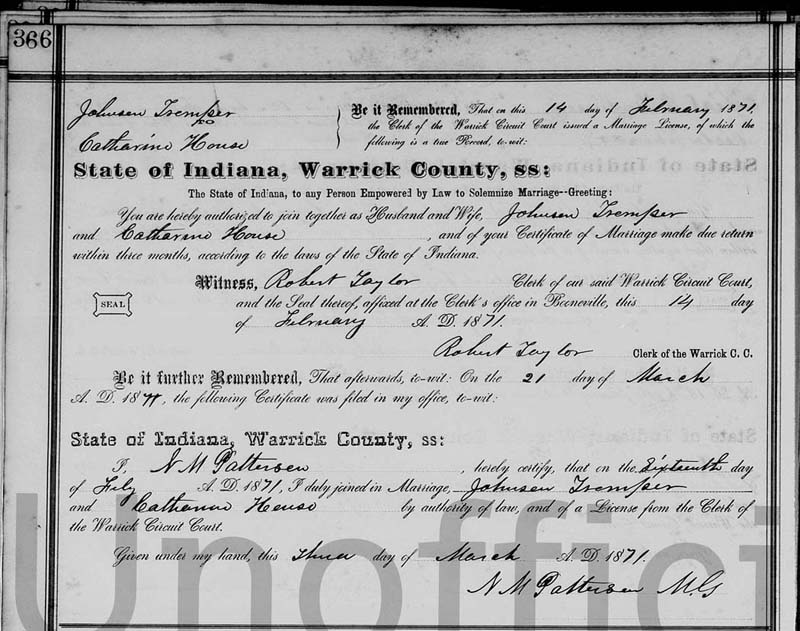 366
Johnson Tremper
to
Catharine House
Be it Remembered, That on this 14 day of February 1871,
the Clerk of the Warrick Circuit Court issued a Marriage License, of which the
following is a true Record, to-wit:
State of Indiana, Warrick County, ss:
The State of Indiana, to any Person Empowered by Law to Solemnize Marriage--Greeting:
You are hereby authorized to join together as Husband and Wife, Johnson Tremper
and Catharine House, and of your Certificate of Marriage make due return
within three months, according to the laws of the State of Indiana.
Witness, Robert Taylor Clerk of our said Warrick Circuit Court,
SEAL
and the Seal thereof, affixed at the Clerk's office in Booneville, this 14 day
of February A. D. 1871.
Robert Taylor Clerk of the Warrick C. C.
Be it further Remembered, That afterwards, to-wit: On the 21 day of March
A. D. 18, the following Certificate was filed in my office, to-wit:
State of Indiana, Warrick County, ss:
I, N M Patterson, hereby certify, that on the Sixteenth day
of A. D. 1871, I duly joined in Marriage, Johnson Tremper
and Catharine House by authority of law, and of a License from the Clerk of
the Warrick Circuit Court.
Given under my hand, this day of March A. D. 1871.
N M Patterson M.G
Unoffici